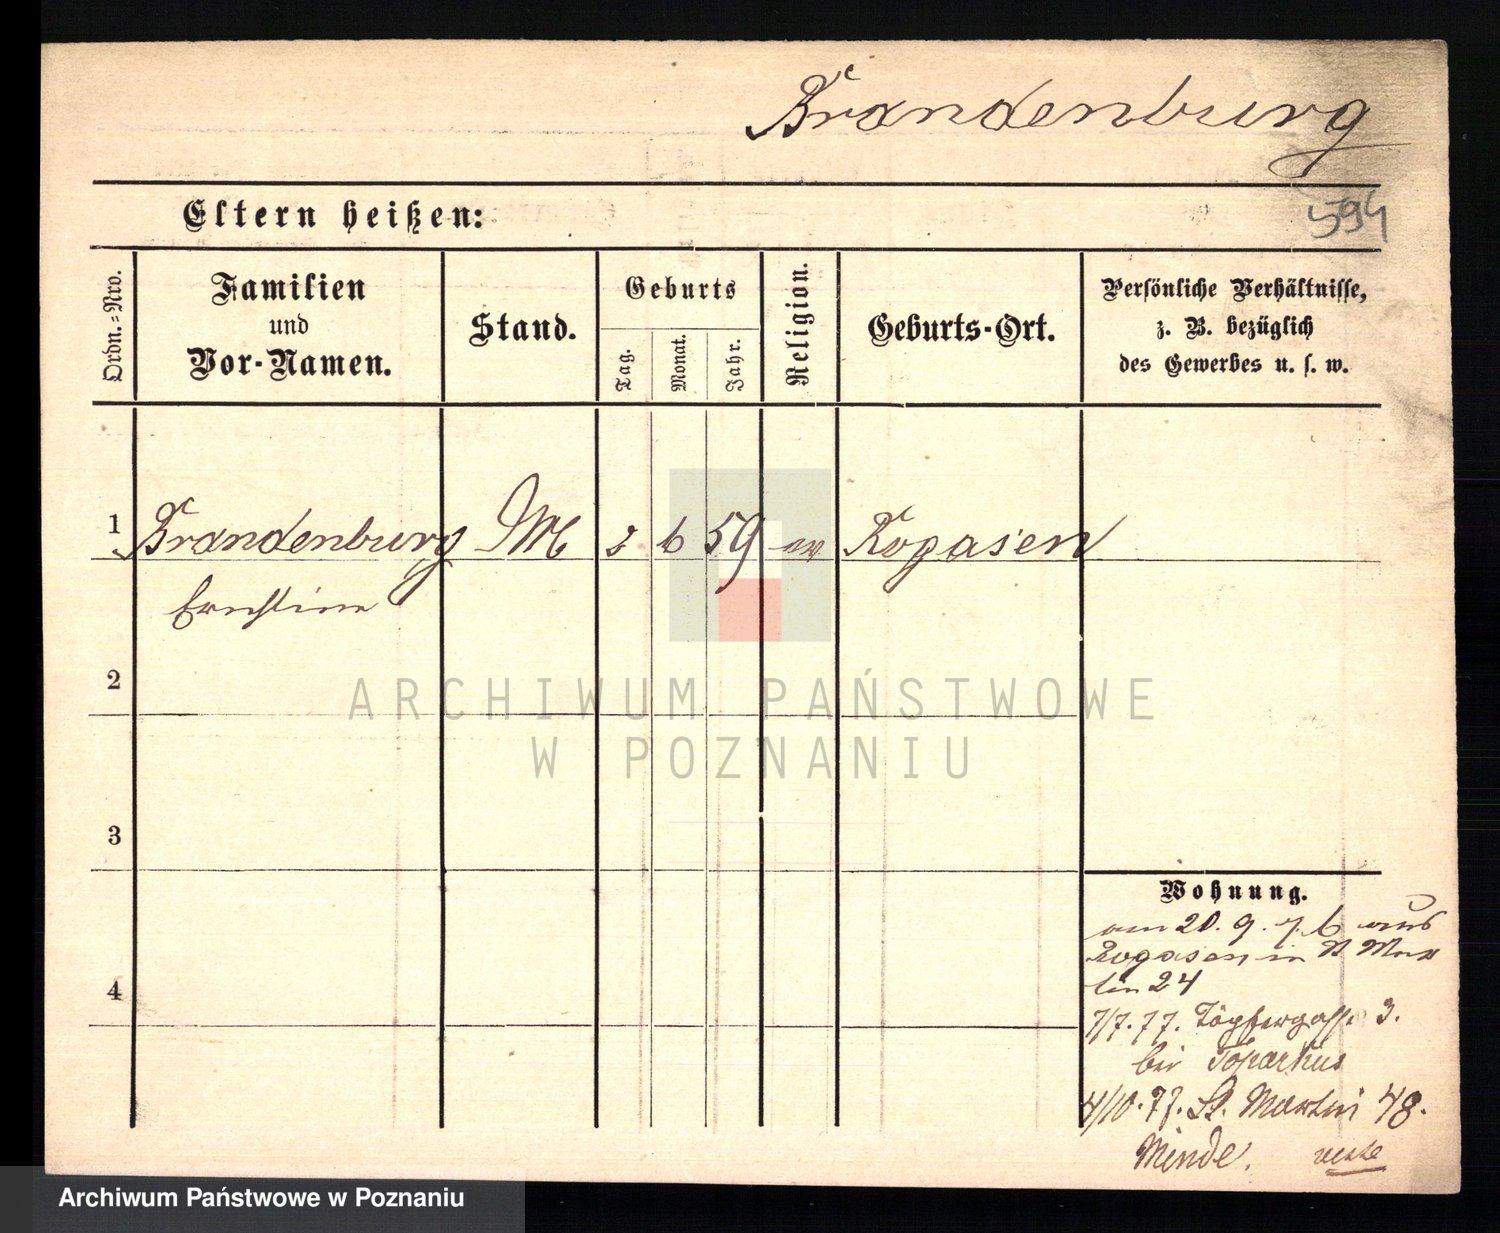 Brandenburg
594
Eltern heißen:
Ordn.=Nro.
Familien
und
Vor-Namen.
Stand.
Geburts
Tag.
Monat.
Jahr.
Religion.
Geburts-Ort.
Persönliche Verhältnisse,
z. B. bezüglich
des Gewerbes u. s. w.
1
Brandenburg M 2 6 59 ev Rogasen
Ernstine
2
ARCHIWUM PAŃSTWOWE
W POZNANIU
3
4
Wohnung.
am 20. 9. 76 aus
Rogasen in St Mar
tin 24
7/7. 77. Töpfergasse 3.
bei
4/10. 77. St. Martin 48.
Minde.
Archiwum Państwowe w Poznaniu